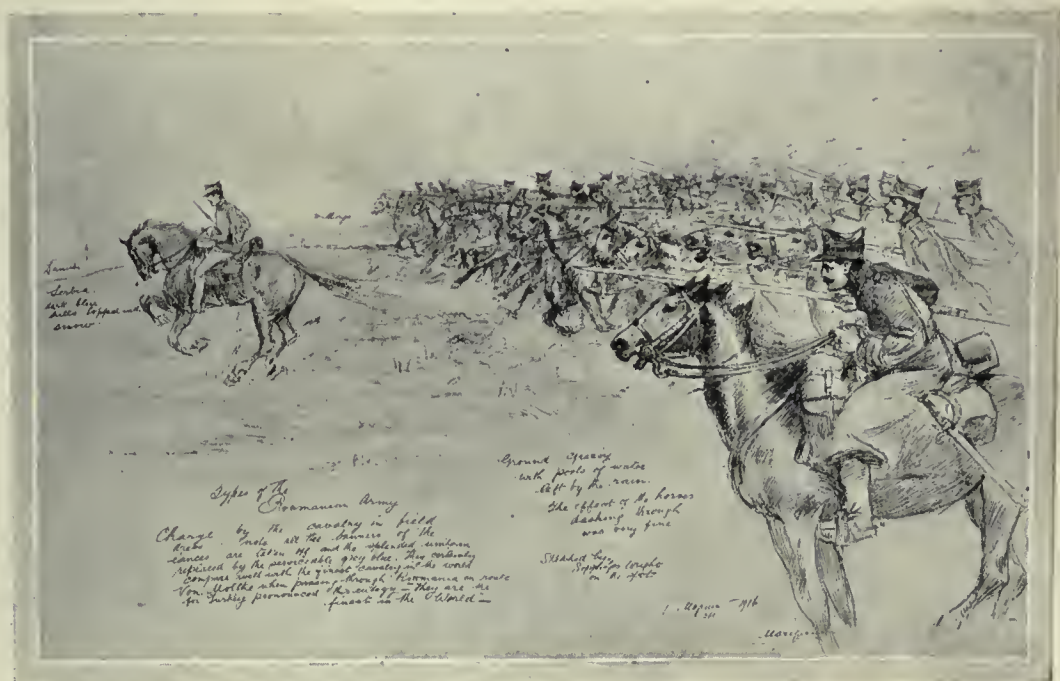 village
Danube
Serbia.
dark blue
hills topped with
snow.
Types of the
Roumanian Army
Charge by the cavalry in field
dress. note all the banners of the
lances are taken off and the splendid uniform
replaced by the serviceable grey blue. They certainly
compare well with the finest cavalry in the world
Von Moltke when passing through Roumania en route
for Turkey pronounced this eulogy — They are the
finest in the World —
Ground greasy
with pools of water
left by the rain.
The effect of the horses
dashing through
was very fine
Sketched by
on the spot
1916